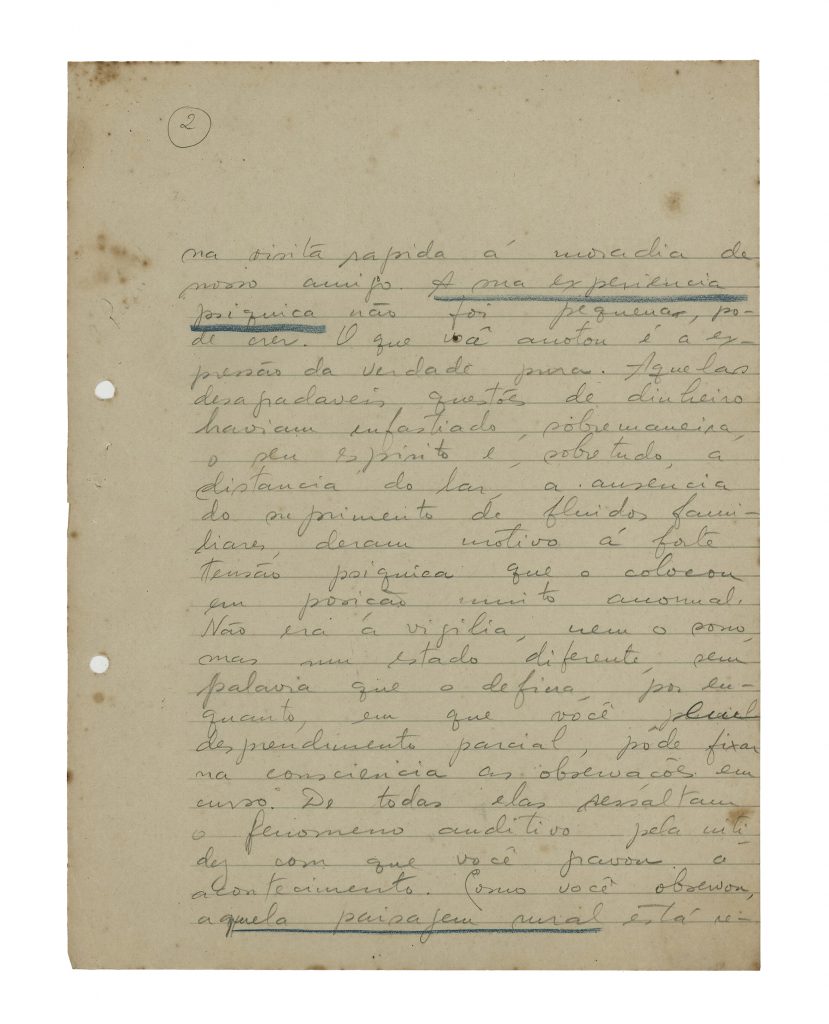 2
na visita rapida á moradia de
nosso amigo. A sua experiencia
psiquica não foi pequena, po-
de crer. O que você anotou é a ex-
pressão da verdade pura. Aquelas
desagradaveis questões de dinheiro
haviam enfastiado, sobremaneira,
o seu espirito e, sobretudo, a
distancia do lar, a ausencia
do suprimento de fluidos fami-
liares, deram motivo á forte
tensão psiquica que o colocou
em posicão muito anormal.
Não era a vigilia, nem o sono,
mas um estado diferente, sem
palavra que o defina, por en-
quanto, em que você,
desprendimento parcial, pôde fixar
na consciencia as observacões em
curso. De todas elas ressaltam
o fenomeno auditivo pela niti-
dez com que você gravou o
acontecimento. Como você observou,
aquela paisagem rural está re-